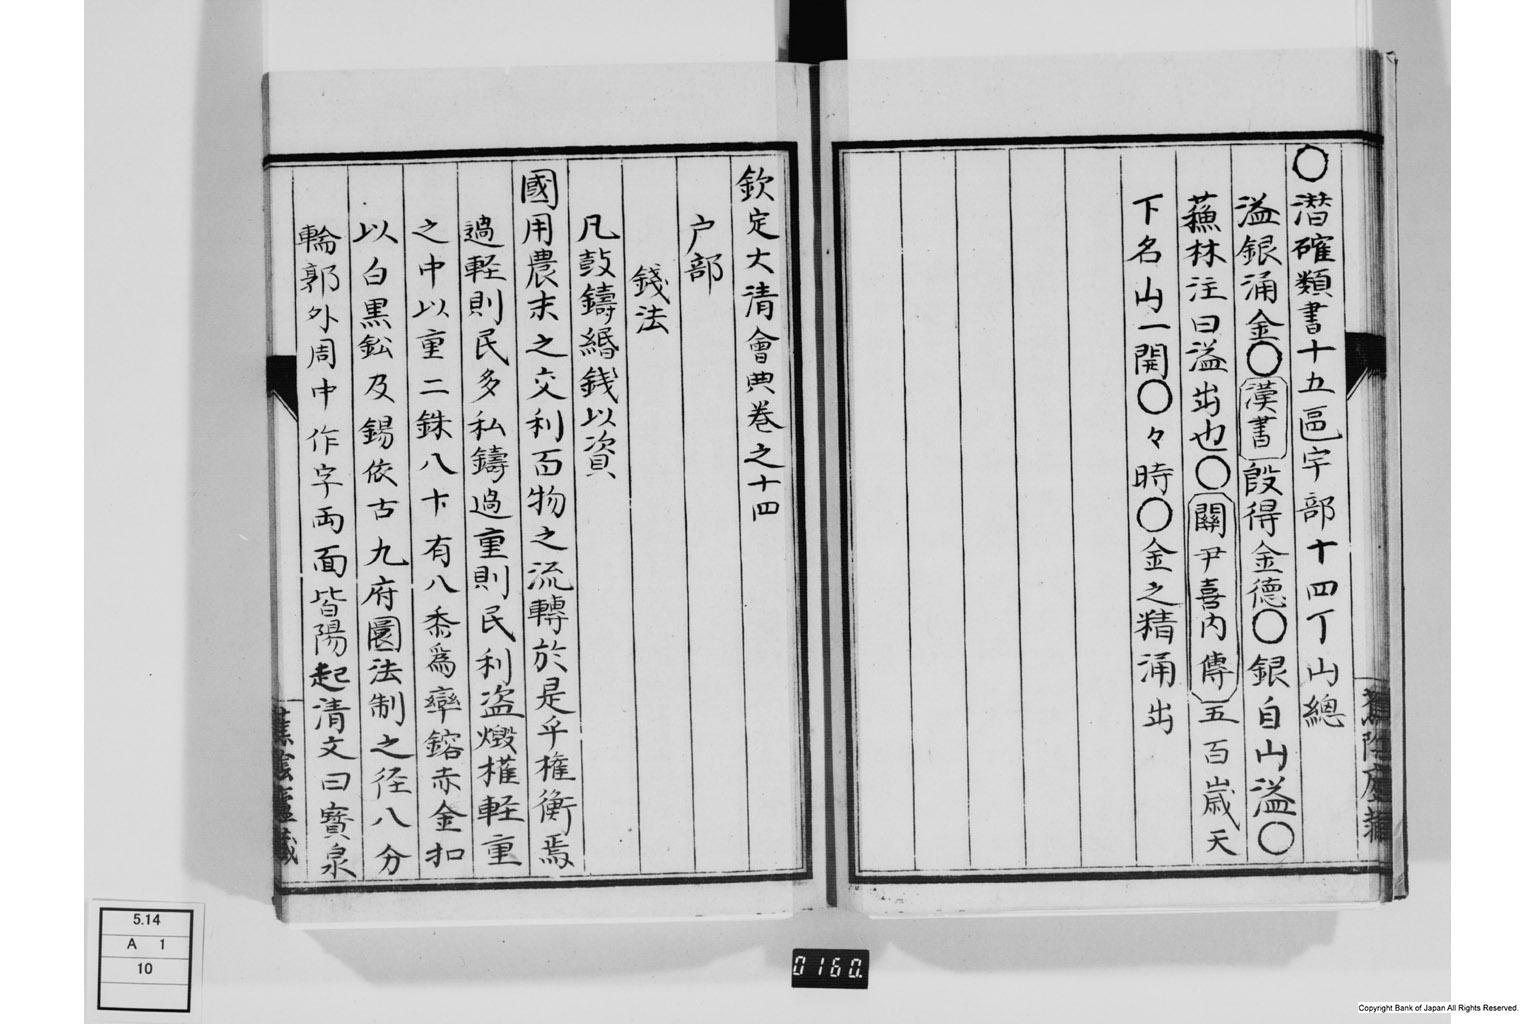 〇潜確類書十五區宇部十四丁山總
溢銀涌金〇漢書殷得金德〇銀自山溢〇
蘓林注曰溢出也〇關尹喜內傳五百歲天
下名山一開〇々時〇金之精涌出
欽定大清會典卷之十四
户部
錢法
凡鼓鑄緡錢以資
國用農末之交利百物之流轉於是乎權衡焉
過輕則民多私鑄過重則民利盗燬權輕重
之中以重二銖八卞有八黍爲率鎔赤金扣
以白黒鈆及錫依古九府圜法制之径八分
輪郭外周中作字両面皆陽起清文曰寳泉
蕉陰廬藏
蕉陰廬藏
5.14
A 1
10
0160.
Copyright Bank of Japan All Rights Reserved.